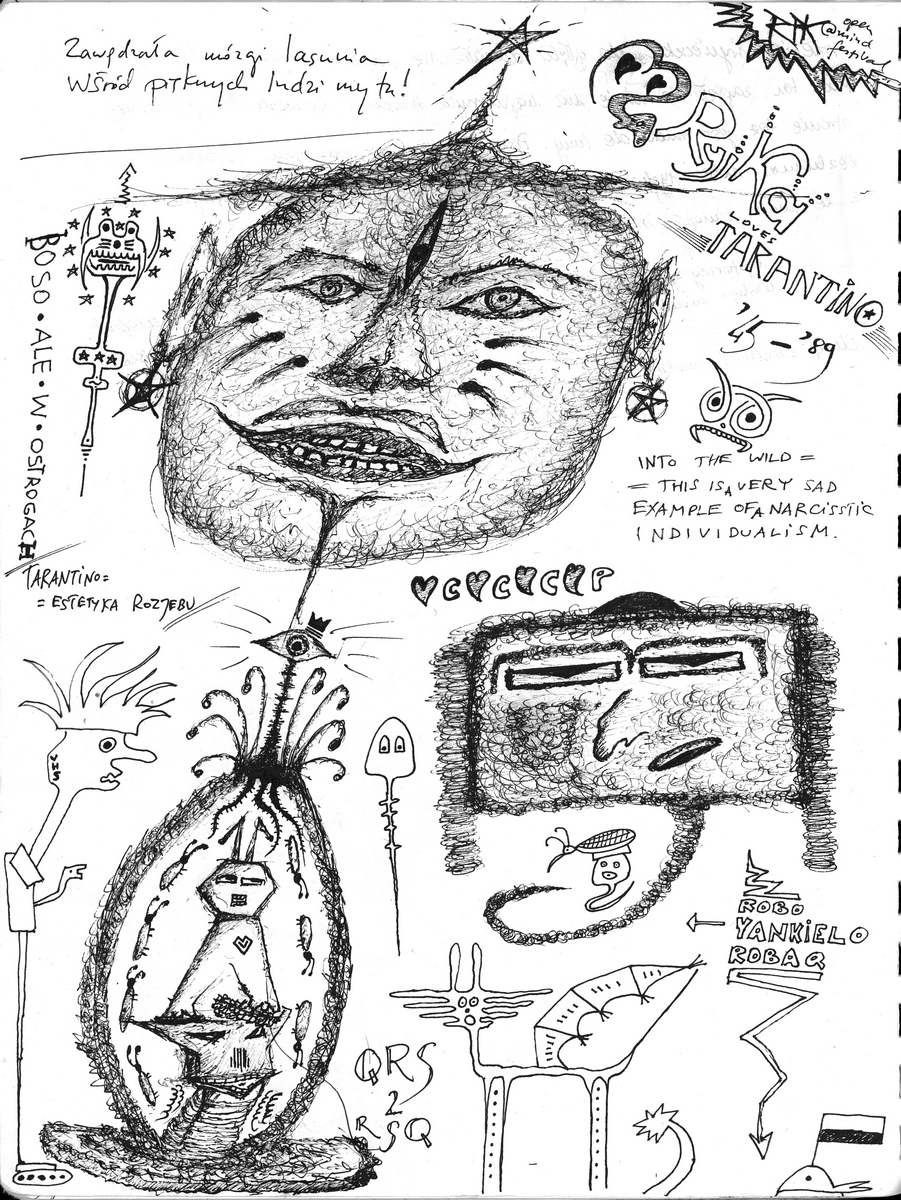 Zawędrała mózgi lasunia
Wśród pięknych ludzi my tu!
open
@mind
festival
Ryjka
LOVES
TARANTINO
'45 – '89
INTO THE WILD =
= THIS IS A VERY SAD
EXAMPLE OF A NARCISSTIC
INDIVIDUALISM.
BOSO • ALE • W • OSTROGACH
TARANTINO =
= ESTETYKA ROZJEBU
♥C♥C♥C♥P
ROBO
YANKIELO
ROBAQ
QRS
2
RSQ